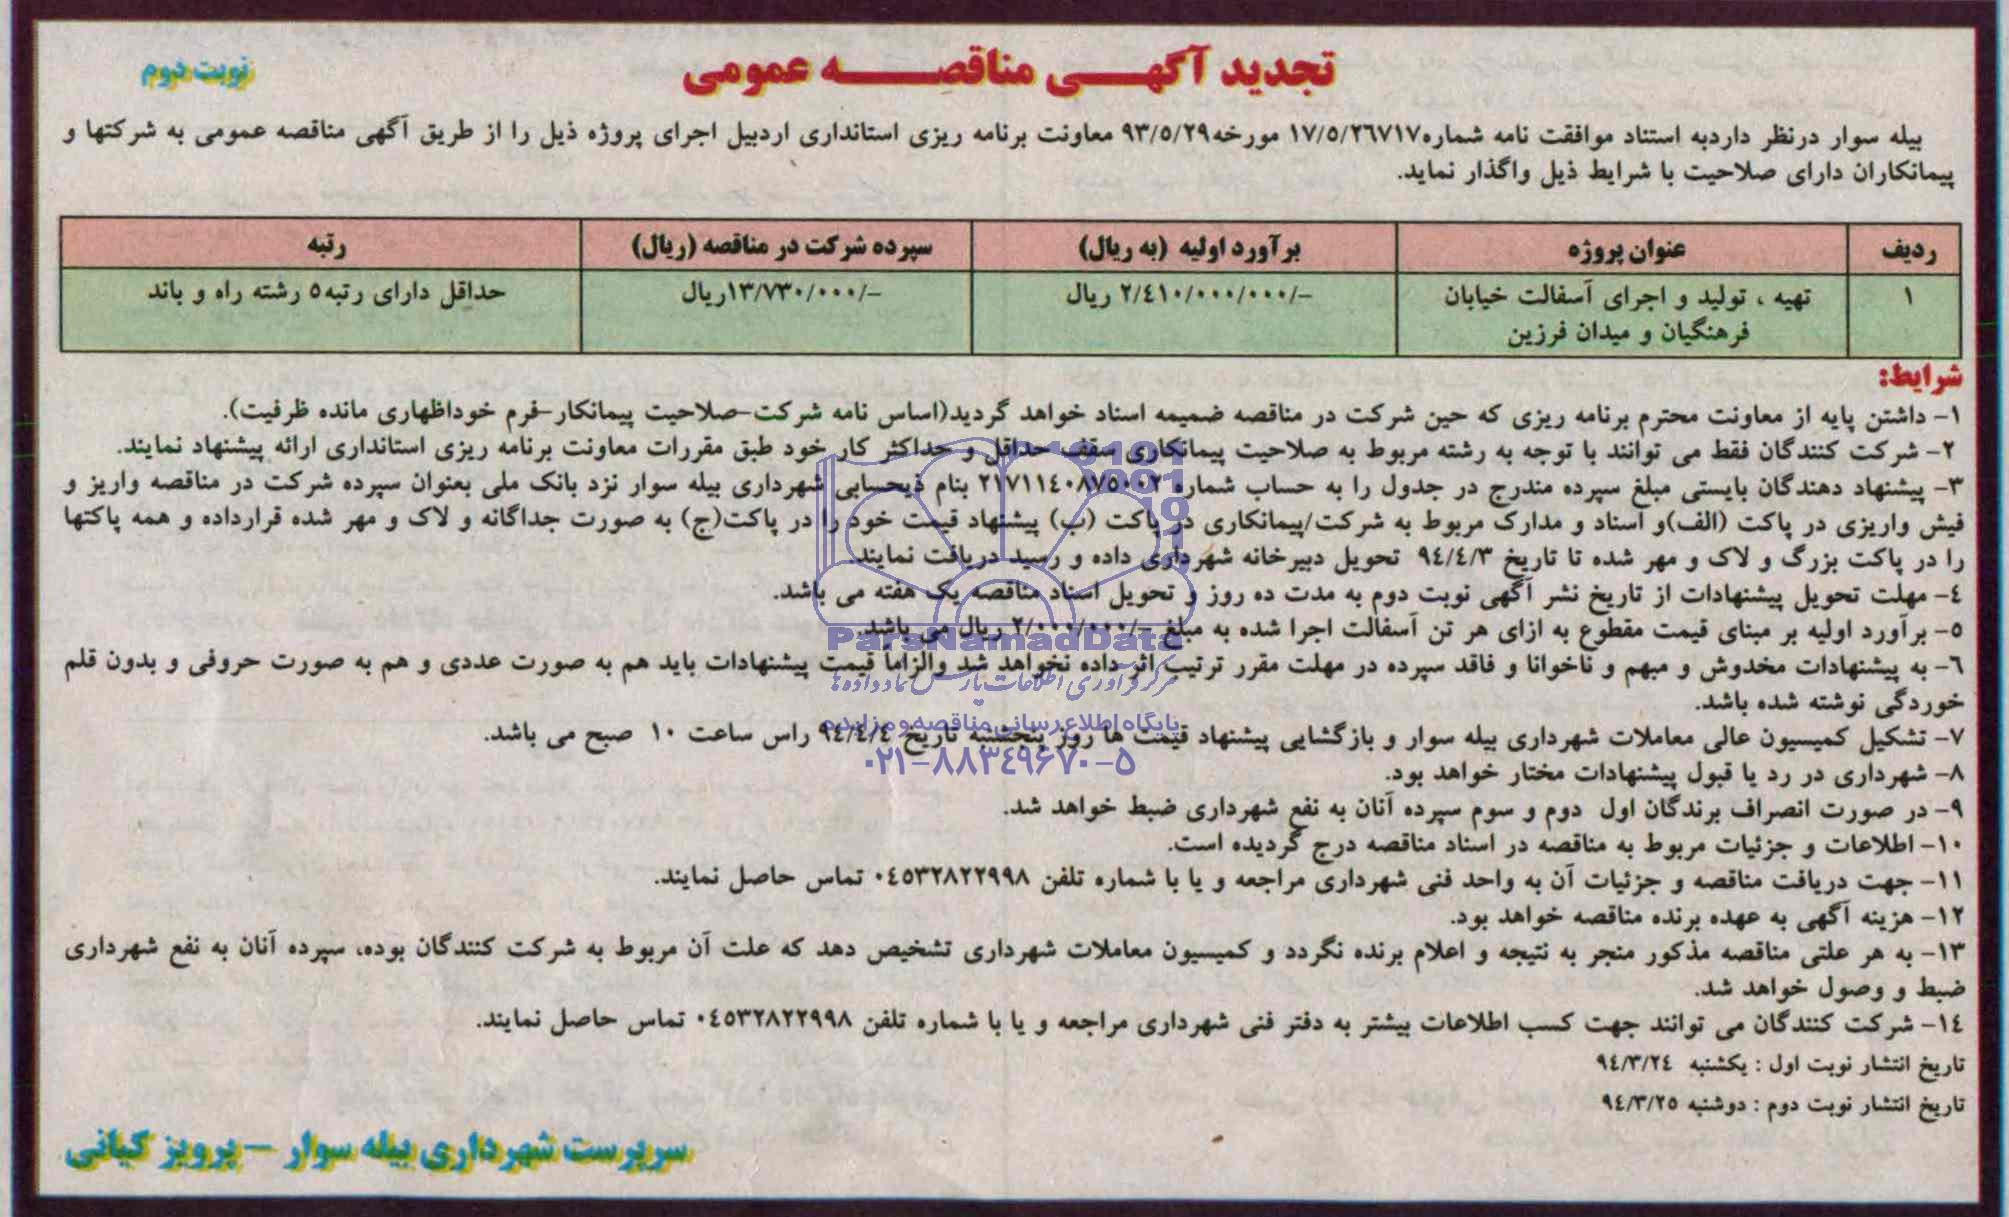 تجدید آگهی مناقصه عمومی
نوبت دوم
بیله سوار درنظر داردبه استناد موافقت نامه شماره۱۷/۵/۲۶۷۱۷ مورخه۹۳/۵/۲۹ معاونت برنامه ریزی استانداری اردبیل اجرای پروژه ذیل را از طریق آگهی مناقصه عمومی به شرکتها و
پیمانکاران دارای صلاحیت با شرایط ذیل واگذار نماید.
ردیف عنوان پروژه برآورد اولیه (به ریال) سپرده شرکت در مناقصه (ریال) رتبه
۱ تهیه ، تولید و اجرای آسفالت خیابان ۲/٤۱۰/۰۰۰/۰۰۰/- ریال ۱۳/۷۳۰/۰۰۰/-ریال حداقل دارای رتبه۵ رشته راه و باند
فرهنگیان و میدان فرزین
شرایط:
۱- داشتن پایه از معاونت محترم برنامه ریزی که حین شرکت در مناقصه ضمیمه اسناد خواهد گردید(اساس نامه شرکت-صلاحیت پیمانکار-فرم خوداظهاری مانده ظرفیت).
۲- شرکت کنندگان فقط می توانند با توجه به رشته مربوط به صلاحیت پیمانکاری سقف حداقل و حداکثر کار خود طبق مقررات معاونت برنامه ریزی استانداری ارائه پیشنهاد نمایند.
۳- پیشنهاد دهندگان بایستی مبلغ سپرده مندرج در جدول را به حساب شماره ۲۱۷۱۱٤۰۸۷۵۰۰۲ بنام ذیحسابی شهرداری بیله سوار نزد بانک ملی بعنوان سپرده شرکت در مناقصه واریز و
فیش واریزی در پاکت (الف)و اسناد و مدارک مربوط به شرکت/پیمانکاری در پاکت (ب) پیشنهاد قیمت خود را در پاکت(ج) به صورت جداگانه و لاک و مهر شده قرارداده و همه پاکتها
را در پاکت بزرگ و لاک و مهر شده تا تاریخ ۹٤/٤/۳ تحویل دبیرخانه شهرداری داده و رسید دریافت نمایند.
٤- مهلت تحویل پیشنهادات از تاریخ نشر آگهی نوبت دوم به مدت ده روز و تحویل اسناد مناقصه یک هفته می باشد.
۵- برآورد اولیه بر مبنای قیمت مقطوع به ازای هر تن آسفالت اجرا شده به مبلغ ۲/۰۰۰/۰۰۰/- ریال می باشد.
٦- به پیشنهادات مخدوش و مبهم و ناخوانا و فاقد سپرده در مهلت مقرر ترتیب اثر داده نخواهد شد والزاماً قیمت پیشنهادات باید هم به صورت عددی و هم به صورت حروفی و بدون قلم
خوردگی نوشته شده باشد.
۷- تشکیل کمیسیون عالی معاملات شهرداری بیله سوار و بازگشایی پیشنهاد قیمت ها روز پنجشنبه تاریخ ۹٤/٤/٤ راس ساعت ۱۰ صبح می باشد.
۸- شهرداری در رد یا قبول پیشنهادات مختار خواهد بود.
۹- در صورت انصراف برندگان اول دوم و سوم سپرده آنان به نفع شهرداری ضبط خواهد شد.
۱۰- اطلاعات و جزئیات مربوط به مناقصه در اسناد مناقصه درج گردیده است.
۱۱- جهت دریافت مناقصه و جزئیات آن به واحد فنی شهرداری مراجعه و یا با شماره تلفن ۰٤۵۳۲۸۲۲۹۹۸ تماس حاصل نمایند.
۱۲- هزینه آگهی به عهده برنده مناقصه خواهد بود.
۱۳- به هر علتی مناقصه مذکور منجر به نتیجه و اعلام برنده نگردد و کمیسیون معاملات شهرداری تشخیص دهد که علت آن مربوط به شرکت کنندگان بوده، سپرده آنان به نفع شهرداری
ضبط و وصول خواهد شد.
۱٤- شرکت کنندگان می توانند جهت کسب اطلاعات بیشتر به دفتر فنی شهرداری مراجعه و یا با شماره تلفن ۰٤۵۳۲۸۲۲۹۹۸ تماس حاصل نمایند.
تاریخ انتشار نوبت اول : یکشنبه ۹٤/۳/۲٤
تاریخ انتشار نوبت دوم : دوشنبه ۹٤/۳/۲۵
سرپرست شهرداری بیله سوار – پرویز کیانی
ParsNamadData
مرکز فرآوری اطلاعات پارس نماد داده ها
پایگاه اطلاع رسانی مناقصه و مزایده
۰۲۱-۸۸۳۴۹۶۷۰-۵